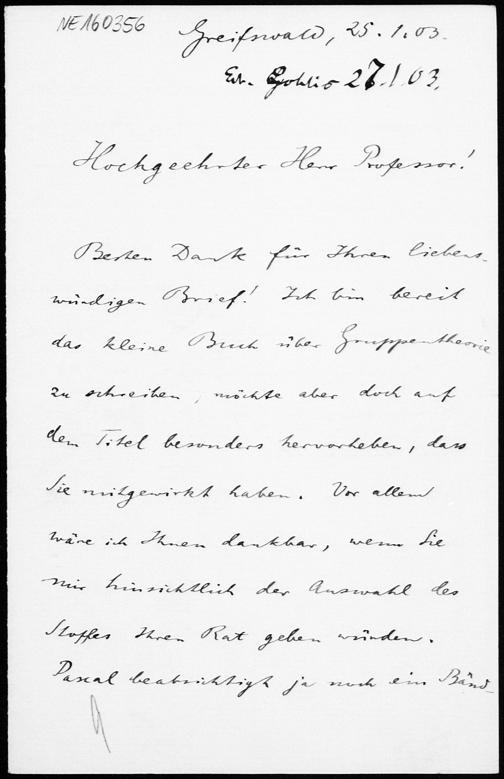 NE160356
Greifswald, 25. 1. 03.
Gohlis 27. 1. 03.
Hochgeehrter Herr Professor!
Besten Dank für Ihren liebens-
würdigen Brief! Ich bin bereit
das kleine Buch über Gruppentheorie
zu schreiben, möchte aber doch auf
dem Titel besonders hervorheben, dass
Sie mitgewirkt haben. Vor allem
wäre ich Ihnen dankbar, wenn Sie
mir hinsichtlich der Auswahl des
Stoffes Ihren Rat geben würden.
Pascal beabsichtigt ja noch ein Bänd-